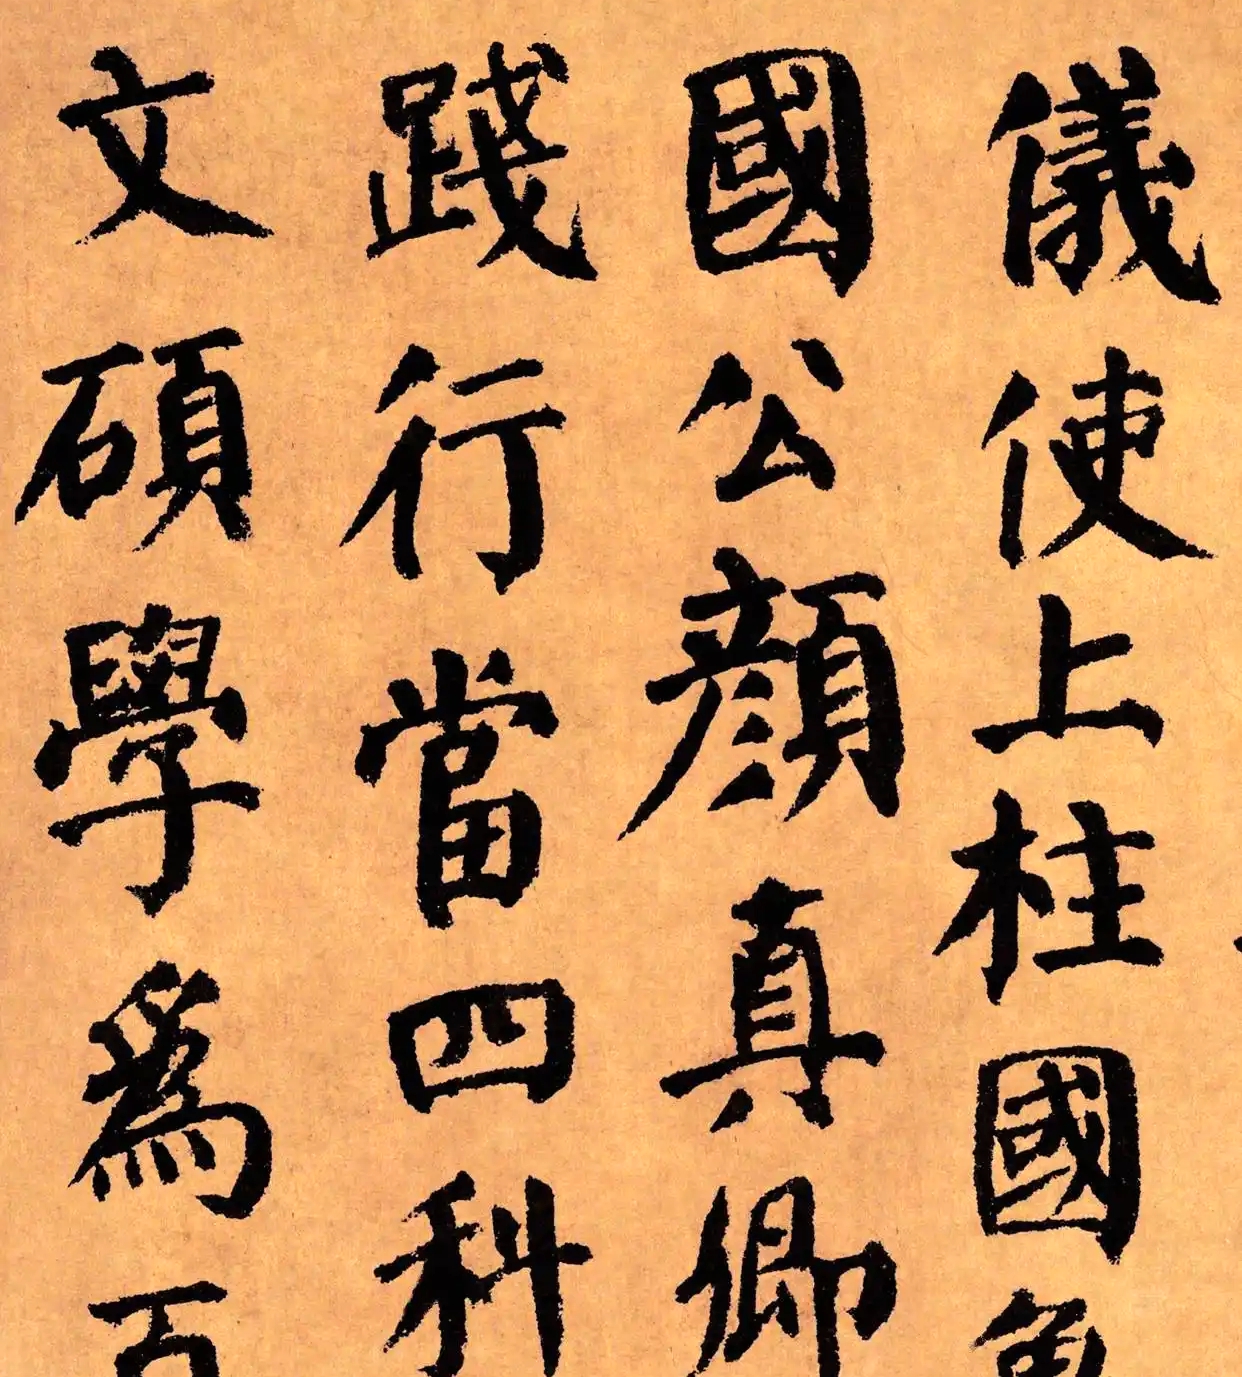 儀使上柱國
國公顏真卿
踐行當四科
文碩學爲